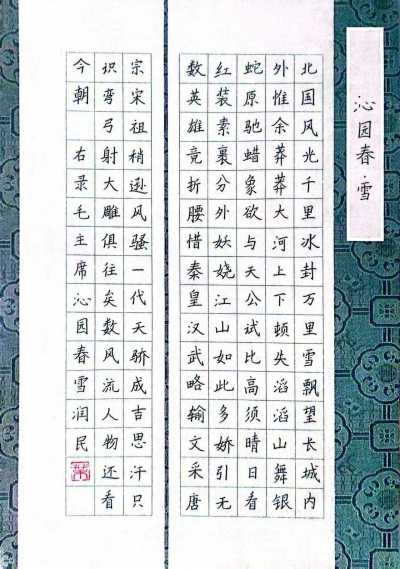 沁园春·雪
北国风光千里冰封万里雪飘望长城内
外惟余莽莽大河上下顿失滔滔山舞银
蛇原驰蜡象欲与天公试比高须晴日看
红装素裹分外妖娆江山如此多娇引无
数英雄竞折腰惜秦皇汉武略输文采唐
宗宋祖稍逊风骚一代天骄成吉思汗只
识弯弓射大雕俱往矣数风流人物还看
今朝 右录毛主席沁园春雪润民